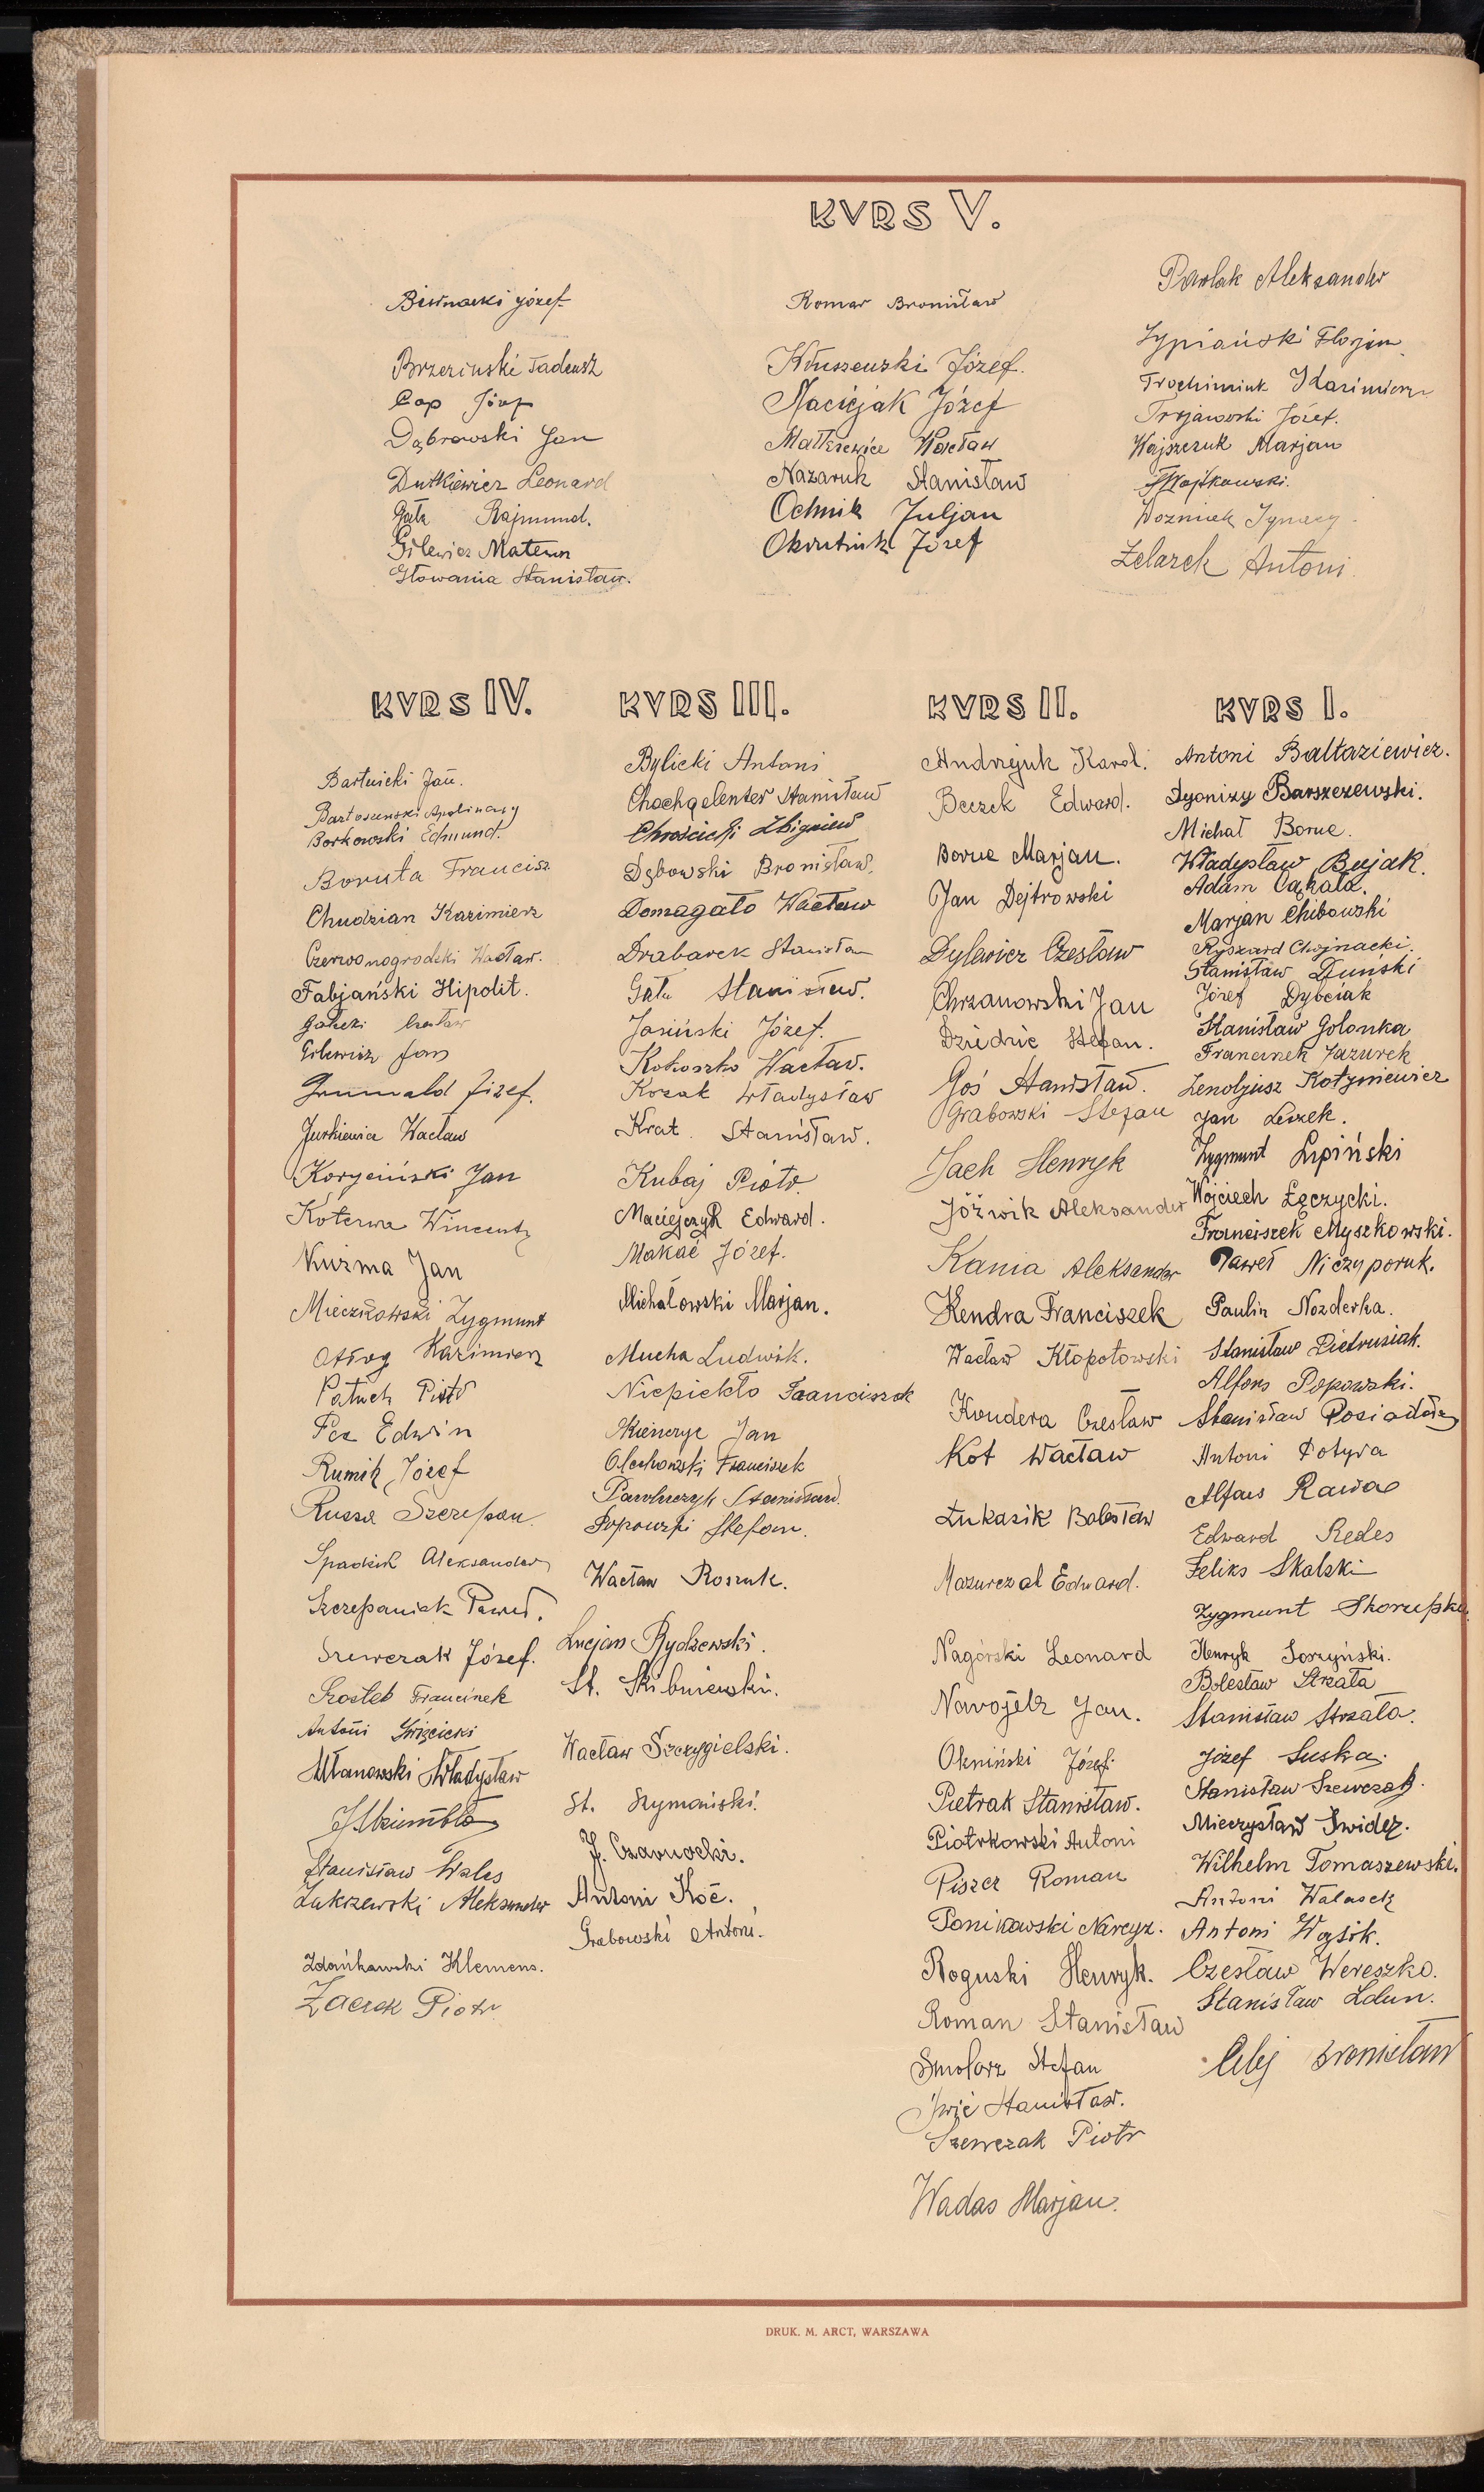 KVRS V.
Biernacki Józef
Brzeziński Tadeusz
Cap Józef
Dąbrowski Jan
Dutkiewicz Leonard
Gała Rajmund.
Gilewicz Mateusz
Głowania Stanisław.
Komar Bronisław
Kłuszewski Józef.
Maciejak Józef
Wacław
Nazaruk Stanisław
Ochnik Juljan
Okrutnik Józef
Pawlak Aleksander
Florjan
Trochimiuk Kazimierz
Trojanowski Józef.
Wajszczuk Marjan
Wojtkowski.
Woźniak Ignacy.
Żelazek Antoni.
KVRS IV.
Bartnicki Jan.
Bartoszewski Apolinary
Borkowski Edmund.
Boruta Francisz
Chudzian Kazimierz
Czerwonogrodzki Wacław.
Fabjański Hipolit.
Gałecki Czesław
Gilewicz Jan
Grunwald Józef.
Jurkiewicz Wacław
Koryciński Jan
Koterwa Wincenty
Kuźma Jan
Mieczkowski Zygmunt
Ożóg Kazimierz
Patuch Piotr
Pez Edwin
Rumik Józef
Russa Szczepan.
Spadzik Aleksander
Szczepaniak Paweł.
Szewczak Józef.
Szostek Franciszek
Antoni Święcicki
Ułanowski Władysław
Stanisław Wales
Zakrzewski Aleksander
Zdańkowski Klemens.
Żaczek Piotr
KVRS III.
Bylicki Antoni
Chachgelenter Stanisław
Chrościcki Zbigniew
Dębowski Bronisław.
Domagało Wacław
Drabarek Stanisław
Gała Stanisław.
Jasiński Józef.
Kokoszko Wacław.
Kozak Władysław
Krat Stanisław.
Kubaj Piotr.
Maciejczyk Edward.
Makać Józef.
Michałowski Marjan.
Mucha Ludwik.
Niepiekło Franciszek
Jan
Olechowski Franciszek
Pawluczyk Stanisław.
Popowski Stefan.
Wacław Roszuk.
Lucjan Rydzewski.
St. Skibniewski.
Wacław Szczygielski.
St. Szymański.
J. Czarnocki.
Antoni Koć.
Grabowski Antoni.
KVRS II.
Andrzejuk Karol.
Beczek Edward.
Boruc Marjan.
Jan Dejtrowski
Dylewicz Czesław
Chrzanowski Jan
Dziedzic Stefan.
Goś Stanisław.
Grabowski Stefan
Jach Henryk
Jóźwik Aleksander
Kania Aleksander
Kendra Franciszek
Wacław Kłopotowski
Kondera Czesław
Kot Wacław
Łukasik Bolesław
Mazurczak Edward.
Nagórski Leonard
Nawojelz Jan.
Okniński Józef.
Pietrak Stanisław.
Piotrkowski Antoni
Piszcz Roman
Ponikowski Narcyz.
Roguski Henryk.
Roman Stanisław
Smolarz Stefan
Świć Stanisław.
Szewczak Piotr
Wadas Marjan.
KVRS I.
Antoni Baltaziewicz.
Dyonizy Barszczewski.
Michał Boruc.
Władysław Bujak.
Adam Cąkała.
Marjan Chibowski
Ryszard Chojnacki.
Stanisław Duński
Józef Dybciak
Stanisław Golonka
Franciszek Jazurek
Zenobjusz Kotyniewicz
Jan Leszek.
Zygmunt Lipiński
Wojciech Łęczycki.
Franciszek Myszkowski.
Paweł Niczyporuk.
Paulin Nozderka.
Stanisław Pietrusiak.
Alfons Popowski.
Stanisław Posiadały
Antoni Potyra
Alfons Rawa
Edward Redes
Feliks Skalski
Zygmunt Skorupka
Henryk Soszyński.
Bolesław Strzała
Stanisław Strzała.
Józef Suska.
Stanisław Szewczak.
Mieczysław Świdez.
Wilhelm Tomaszewski.
Antoni Walasek
Antoni Wąsik.
Czesław Wereszko.
Stanisław Zdun.
Celej Bronisław
DRUK. M. ARCT, WARSZAWA